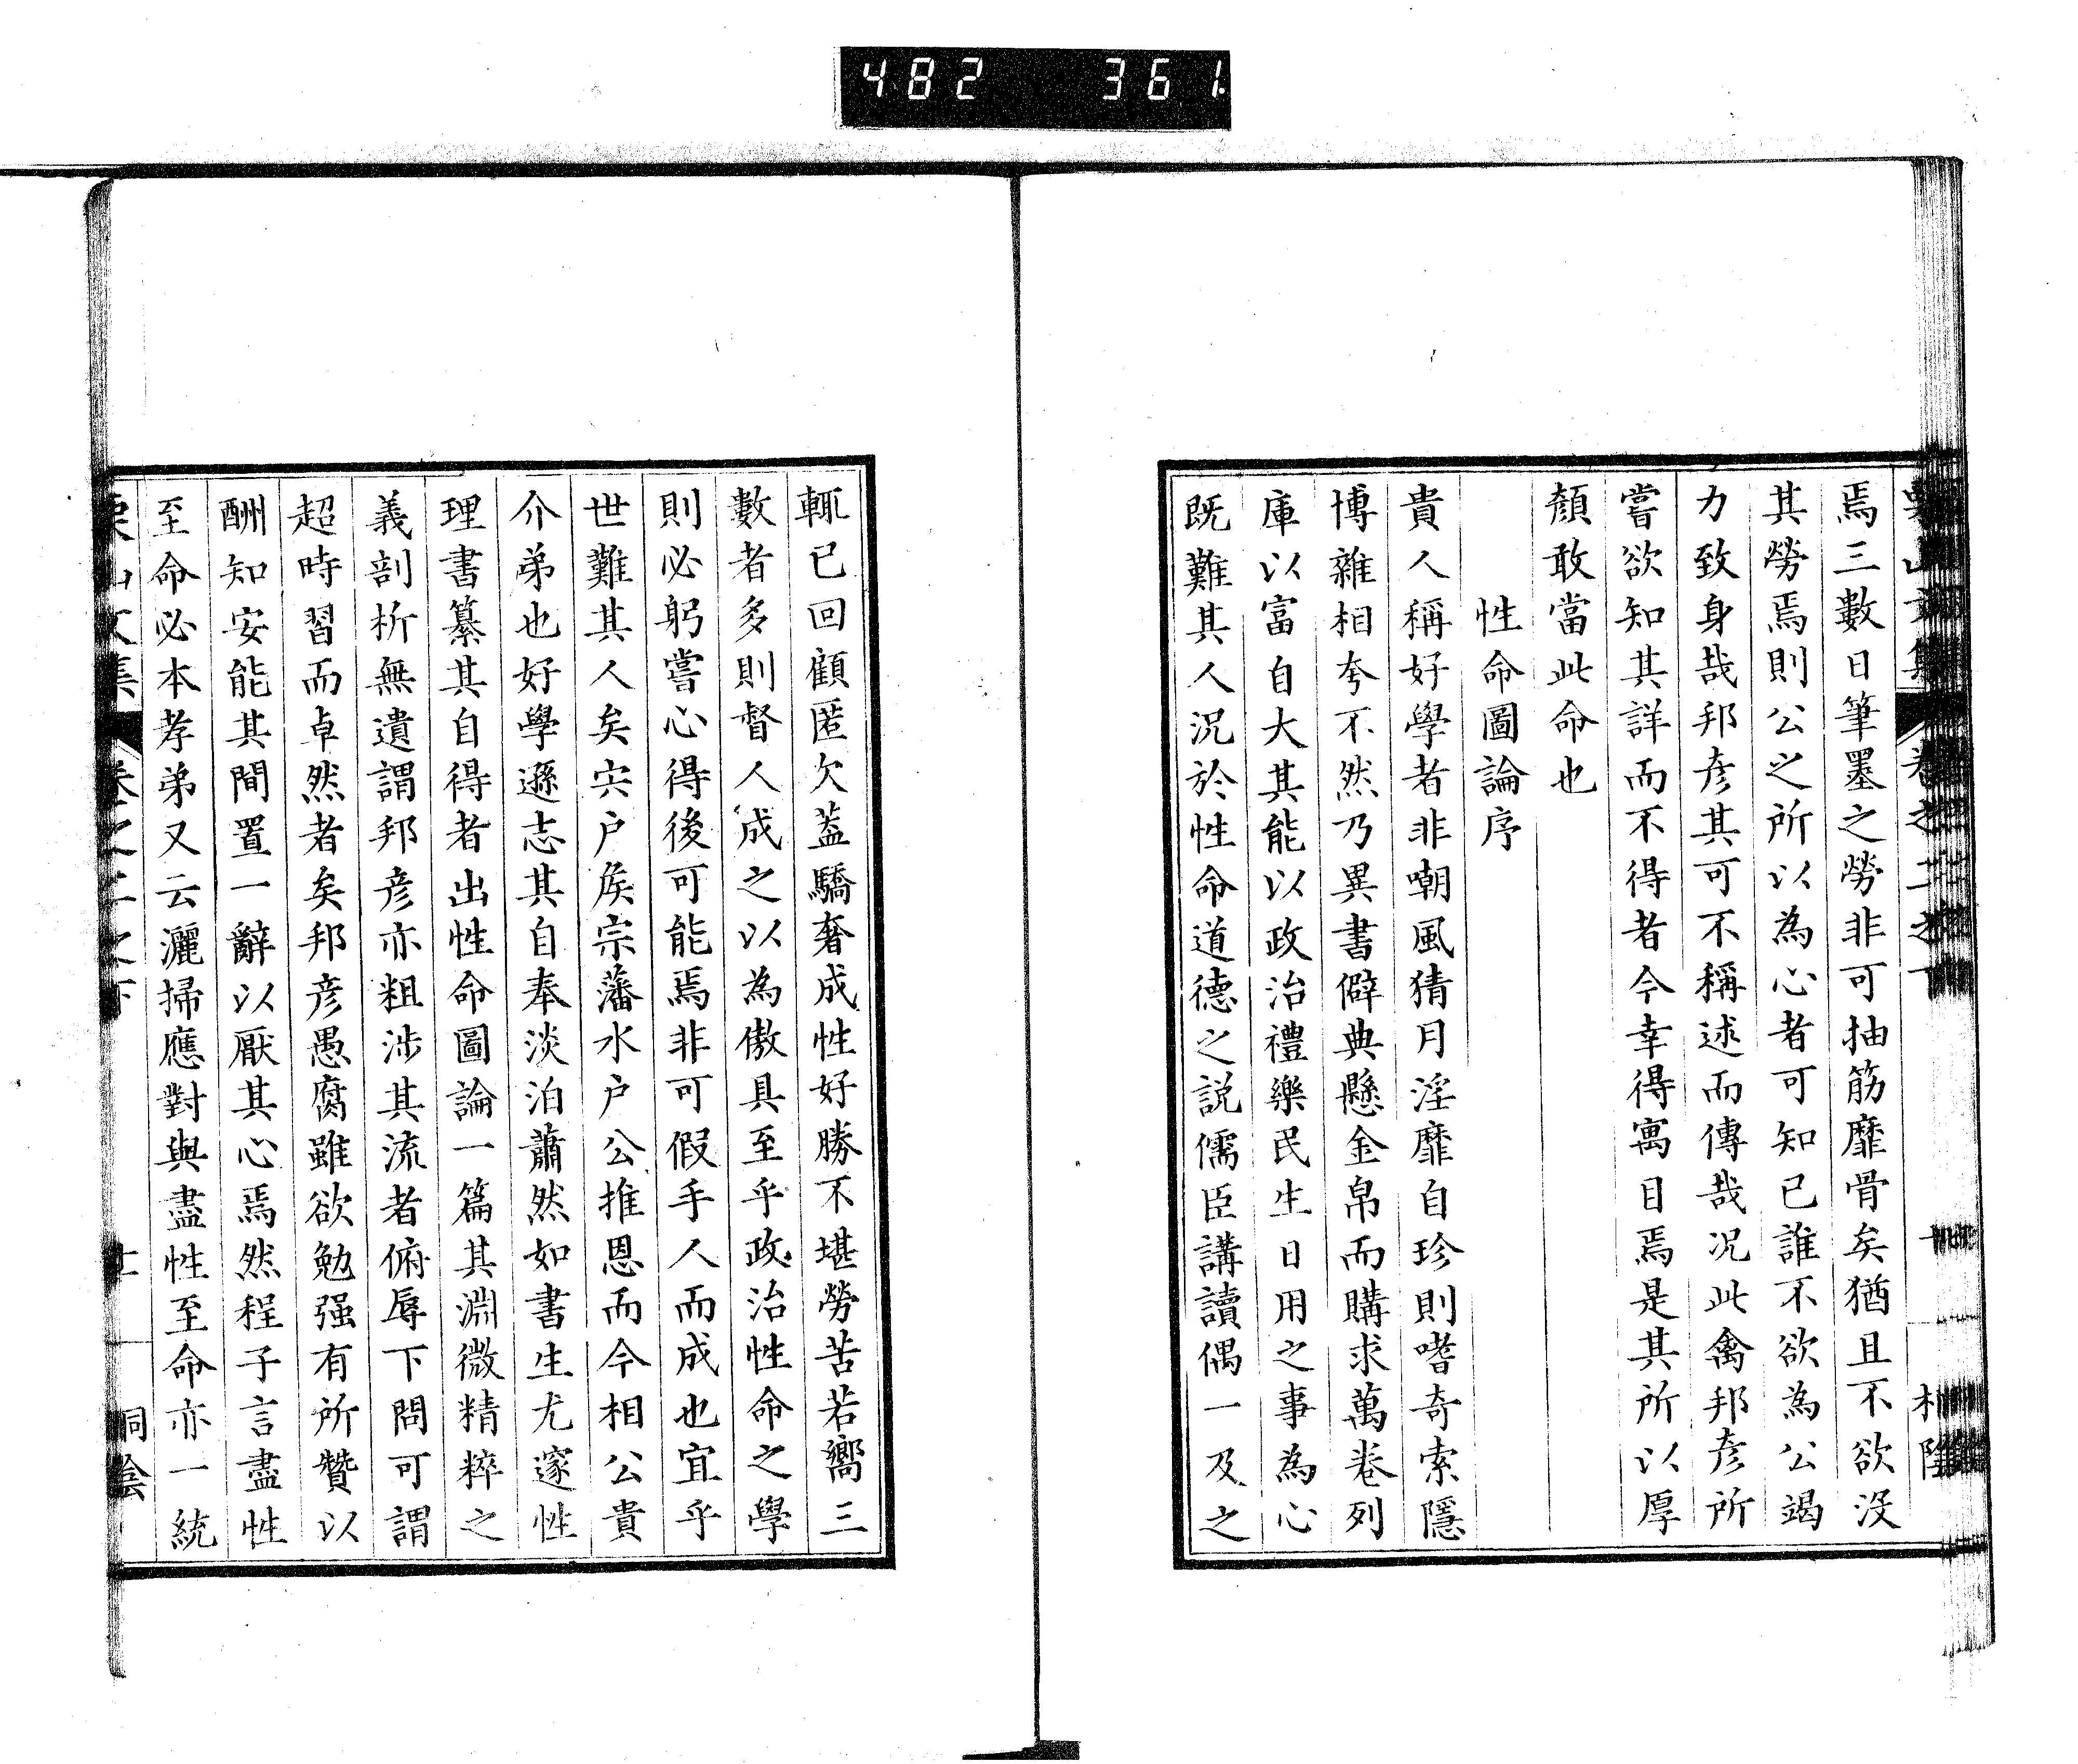 482 361
焉三數日筆墨之勞非可抽筋靡骨矣猶且不欲没
其勞焉則公之所以為心者可知已誰不欲為公竭
力致身哉邦彦其可不稱述而傳哉况此禽邦彦所
嘗欲知其詳而不得者今幸得寓目焉是其所以厚
顏敢當此命也
性命圖論序
貴人稱好學者非嘲風猜月淫靡自珍則嗜奇索隱
博雜相夸不然乃異書僻典懸金帛而購求萬卷列
庫以富自大其能以政治禮樂民生日用之事為心
既難其人况於性命道德之説儒臣講讀偶一及之
輒已回顧匿欠蓋驕奢成性好勝不堪勞苦若嚮三
數者多則督人成之以為傲具至乎政治性命之學
則必躬嘗心得後可能焉非可假手人而成也宜乎
世難其人矣宍户矦宗藩水户公推恩而今相公貴
介弟也好學遜志其自奉淡泊蕭然如書生尤邃性
理書纂其自得者出性命圖論一篇其淵微精粹之
義剖析無遺謂邦彦亦粗涉其流者俯辱下問可謂
超時習而卓然者矣邦彦愚腐雖欲勉强有所贊以
酬知安能其間置一辭以厭其心焉然程子言盡性
至命必本孝弟又云灑掃應對與盡性至命亦一統
栗山文集 卷之二之下